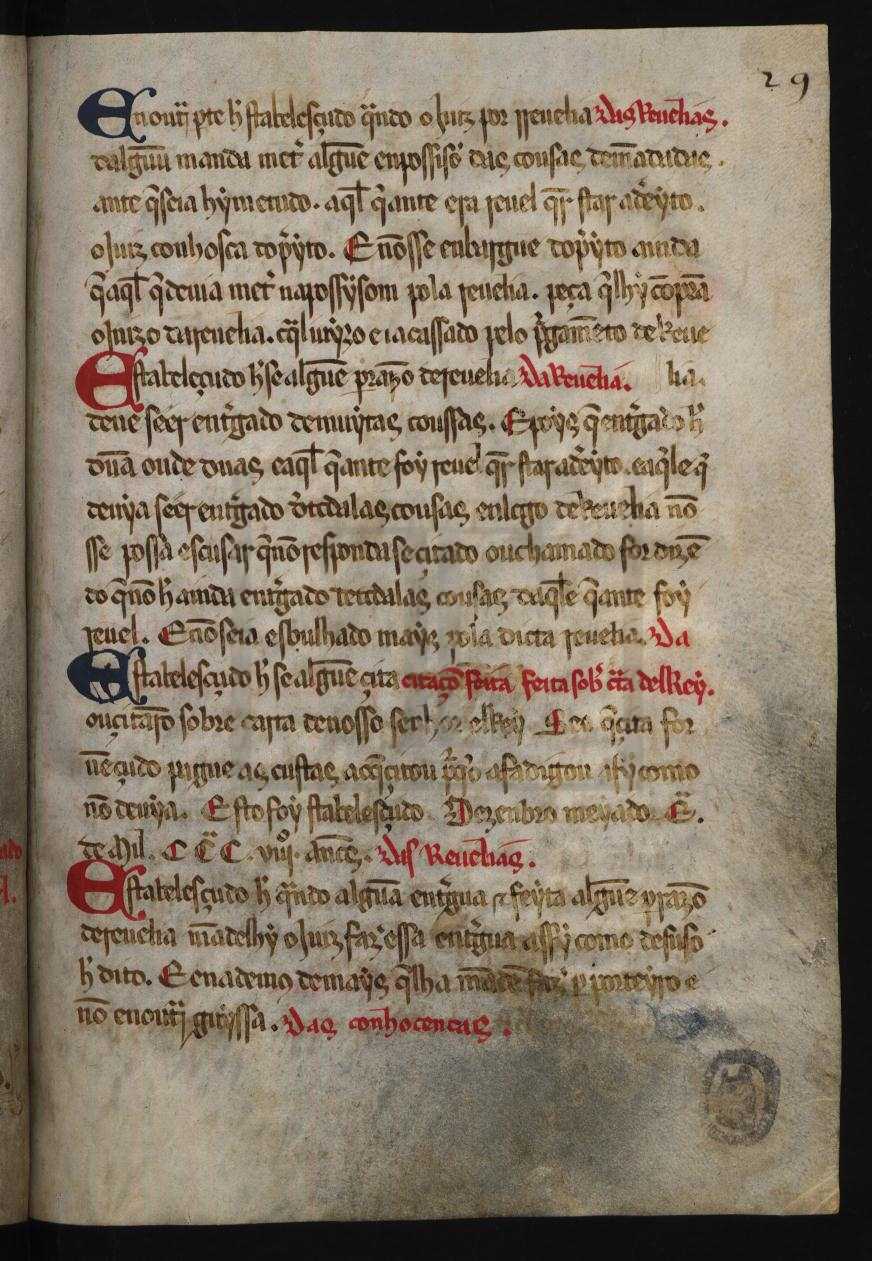 29
Enout̃ pte h̃ stabelesçudo q̃ndo o Juiz por rreuelia Das Reuelias.
dalguũ manda met̃ algũe enpossisõ das cousas demãdadas.
ante q̃ seia hy metudo. aq̃l q̃ ante era reuel q̃r star a dẽyto.
o Juiz conhosca do p̃yto. E nõ sse enbargue do p̃yto ainda
q̃ aq̃l q̃ deuia met̃ na possyssom pola reuelia. peça q̃ lhy cõpra
o Juizo da reuelia. c̃ q̃l Juyzo e ia cassado pelo p̃gamẽto de Reue
Estabeleçudo h̃ se algũe prazo de reuelia Da Reuelia. lia.
deue seer ent̃gado de muytas coussas. E poys q̃ ent̃gado h̃
dũa ou de duas e aq̃l q̃ ante foy reuel q̃r star a dẽyto. e aq̃le q̃
deuya seer ent̃gado de todalas cousas en logo de Reuelia nõ
sse possa escusar q̃ nõ responda se citado ou chamado for dizẽ
do q̃ nõ h̃ ainda ent̃gado de todalas cousas daq̃le q̃ ante foy
reuel. E nõ seia esbulhado mays pola dicta reuelia. Da
Estabelesçudo h̃ se algũe çita citaçõ feita feita sob̃ c̃ta del Rey.
ou çitarõ sobre carta de nosso senhor elRey q̃ çita for
uẽçudo pague as custas a q̃ çitou p̃ q̃ o afadigou assy como
nõ deuya. Esto foy stabelesçudo Dezenbro meyado. Ẽ.
de Mil. C C̃ C. viijº. anos. Das Reuelias.
Estabelesçudo h̃ q̃ndo algũa ent̃gua é feyta algũe prazo
de reuelia mãdelhy o Juiz faz̃ essa ent̃gua assy como de suso
h̃ dito. E enademos de mays q̃ lha mãde faz̃ p porteyro e
nõ en out̃ guyssa. Das conhocencas.